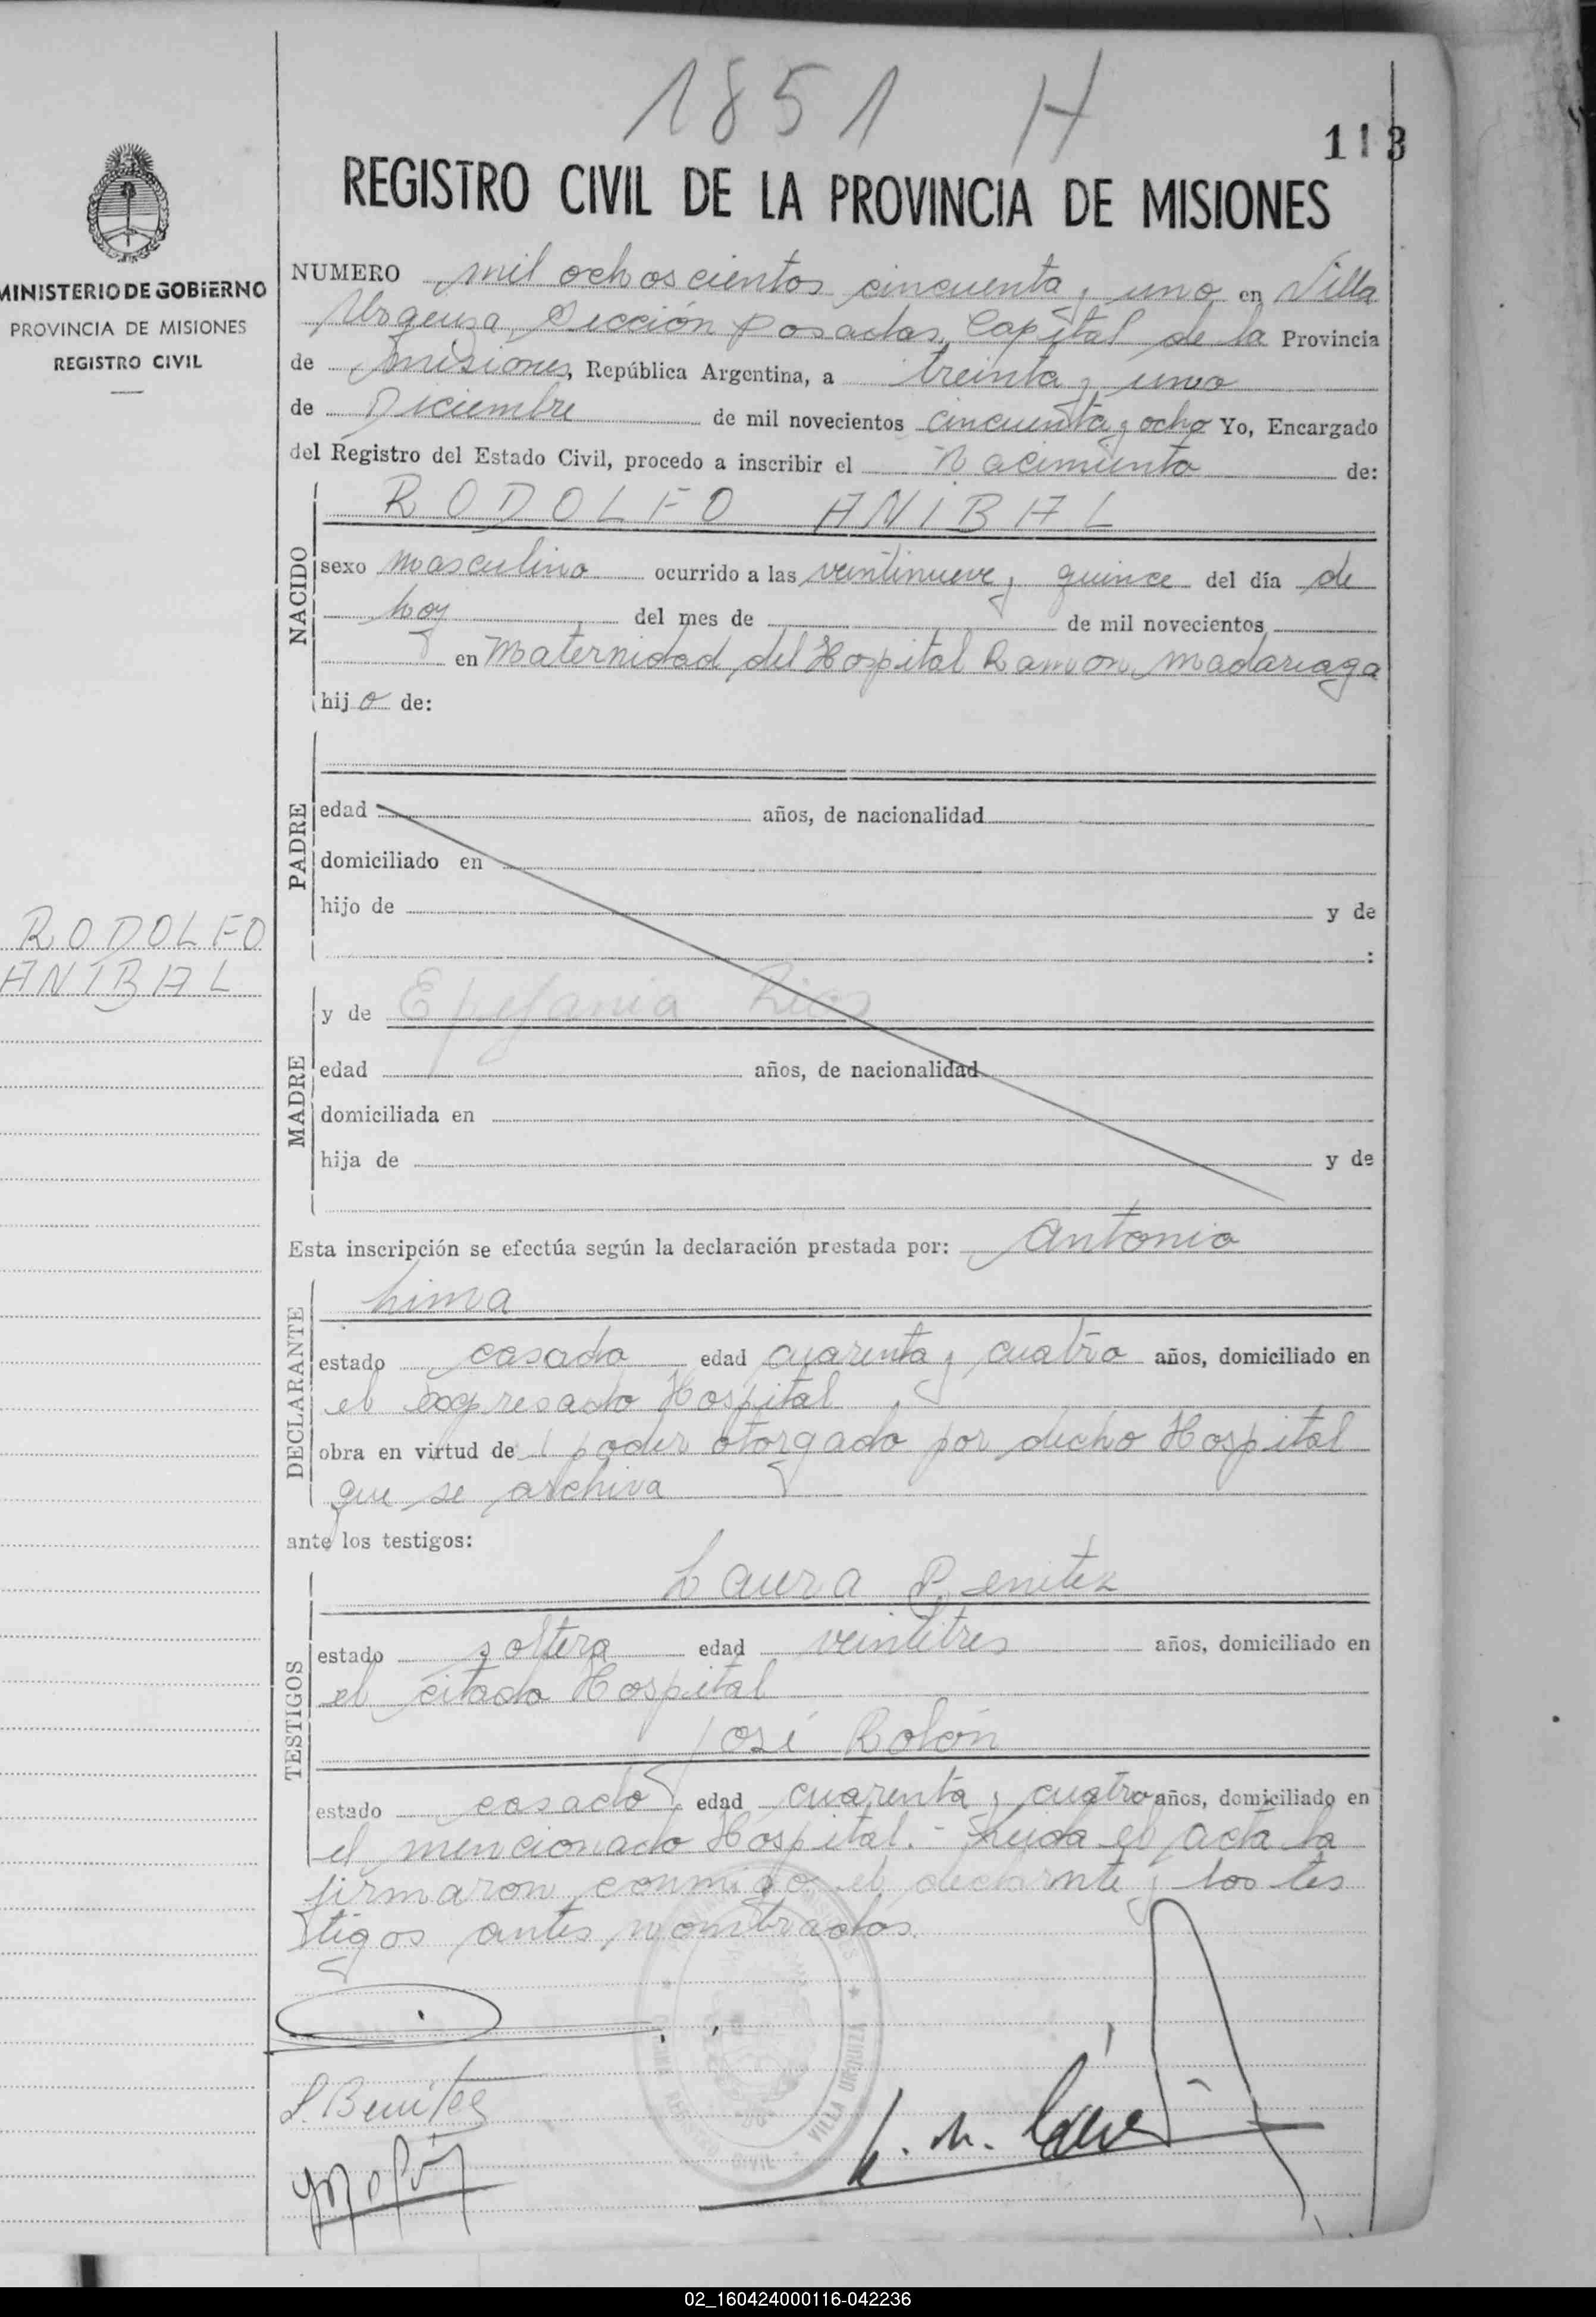 1851 H
113
REGISTRO CIVIL DE LA PROVINCIA DE MISIONES
MINISTERIO DE GOBIERNO
PROVINCIA DE MISIONES
REGISTRO CIVIL
NUMERO mil ochoscientos cincuenta y uno en Villa
Urquiza, Sección Posadas, Capital de la Provincia
de Misiones, República Argentina, a treinta y uno
de Diciembre de mil novecientos cincuenta y ocho Yo, Encargado
del Registro del Estado Civil, procedo a inscribir el Nacimiento de:
NACIDO
RODOLFO ANIBAL
sexo masculino ocurrido a las y quince del día de
hoy del mes de de mil novecientos
en Maternidad del Hospital Ramon Madariaga
hijo de:
PADRE
edad años, de nacionalidad
domiciliado en
hijo de y de
:
RODOLFO
ANIBAL
MADRE
y de Epefania Rios
edad años, de nacionalidad
domiciliada en
hija de y de
Esta inscripción se efectúa según la declaración prestada por: Antonio
DECLARANTE
Lima
estado casado edad cuarenta y cuatro años, domiciliado en
el expresado Hospital
obra en virtud de poder otorgado por dicho Hospital
que se archiva
ante los testigos:
TESTIGOS
Laura Benitez
estado soltera edad veintitres años, domiciliado en
el citado Hospital
José Rolón
estado casado edad cuarenta y cuatro años, domiciliado en
el mencionado Hospital.- Leida el acta la
firmaron conmigo el declarnte y los tes
tigos antes nombrados.
REGISTRO CIVIL VILLA URQUIZA
L. Benitez
02_160424000116-042236